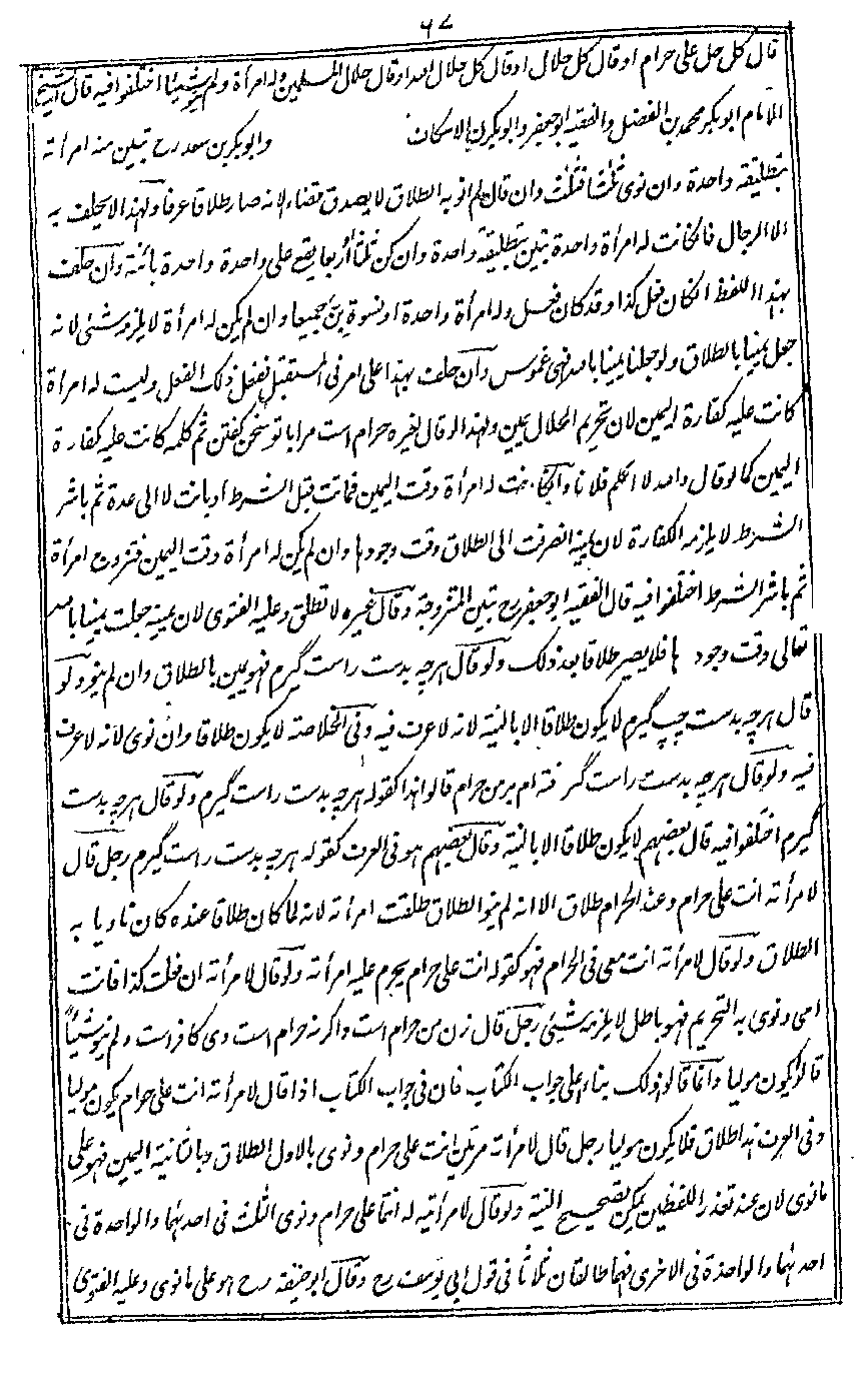 ٦٧
قال كل حل على حرام او قال كل حلال او قال كل حلال الله او قال حلال المسلمين وله امرأة ولم ينو شيئا اختلفوا فيه قال الشيخ
الامام ابو بكر محمد بن الفضل والفقيه ابو جعفر وابو بكر الاسكاف وابو بكر بن سعد رح تبين منه امرأته
بتطليقة واحدة وان نوى ثلثا فثلث وان قال لم انو به الطلاق لا يصدق قضاء لانه صار طلاقا عرفا ولهذا لا يحلف به
الا الرجال فان كانت له امرأة واحدة تبين بتطليقة واحدة وان كن ثلثا او اربعا يقع على واحدة واحدة بائنة وان حلف
بهذا اللفظ ان كان فعل كذا وقد كان فعل وله امرأة واحدة او نسوة بن جميعا وان لم يكن له امرأة لا يلزمه شئى لانه
جعل يمينا بالطلاق ولو جعلنا يمينا بالله فهى غموس وان حلف بهذا على امر فى المستقبل ففعل ذلك الفعل وليست له امرأة
كانت عليه كفارة اليمين لان تحريم الحلال يمين ولهذا لو قال لغيره حرام است مرا با تو سخن كفتن ثم كلمه كانت عليه كفارة
اليمين كما لو قال والله لا اكلم فلانا وان كانت له امرأة وقت اليمين فماتت قبل الشرط او بانت لا الى عدة ثم باشر
الشرط لا يلزمه الكفارة لان يمينه انصرفت الى الطلاق وقت وجودها وان لم يكن له امرأة وقت اليمين فتزوج امرأة
ثم باشر الشرط اختلفوا فيه قال الفقيه ابو جعفر رح تبين المتزوجة وقال غيره لا تطلق وعليه الفتوى لان يمينه جعلت يمينا بالله
تعالى وقت وجودها فلا يصير طلاقا بعد ذلك ولو قال هرچه بدست راست گيرم فهو يمين بالطلاق وان لم ينو ولو
قال هرچه بدست چپ گيرم لا يكون طلاقا الا بالنية لانه لا عرف فيه وفى الخلاصة لا يكون طلاقا وان نوى لانه لا عرف
فيه ولو قال هرچه بدست راست گرفته ام بر من حرام قالوا هذا كقوله هرچه بدست راست گيرم ولو قال هرچه بدست
گيرم اختلفوا فيه قال بعضهم لا يكون طلاقا الا بالنية وقال بعضهم هو فى العرف كقوله هرچه بدست راست گيرم رجل قال
لامرأته انت على حرام وعنده الحرام طلاق الا انه لم ينو الطلاق طلقت امرأته لانه لما كان طلاقا عنده كان ناويا به
الطلاق ولو قال لامرأته انت معى فى الحرام فهو كقوله انت على حرام يحرم عليه امرأته ولو قال لامرأته ان فعلت كذا فانت
امى ونوى به التحريم فهو باطل لا يلزمه شيئى رجل قال زن من حرام است واگر نه حرام است وى كافر است ولم ينو شيئا
قالوا يكون موليا وانما قالوا ذلك بناء على جواب الكتاب فان فى جواب الكتاب اذا قال لامرأته انت على حرام يكون موليا
وفى العرف هذا طلاق فلا يكون موليا رجل قال لامرأته مرتين انت على حرام ونوى بالاول الطلاق وبالثانية اليمين فهو على
ما نوى لان عند تعذر اللفظين يمكن تصحيح النية ولو قال لامرأتيه له انتما على حرام ونوى الثلث فى احديهما والواحدة فى
احديهما والواحدة فى الاخرى فهما طالقان ثلاثا فى قول ابى يوسف رح وقال ابو حنيفة رح هو على ما نوى وعليه الفتوى